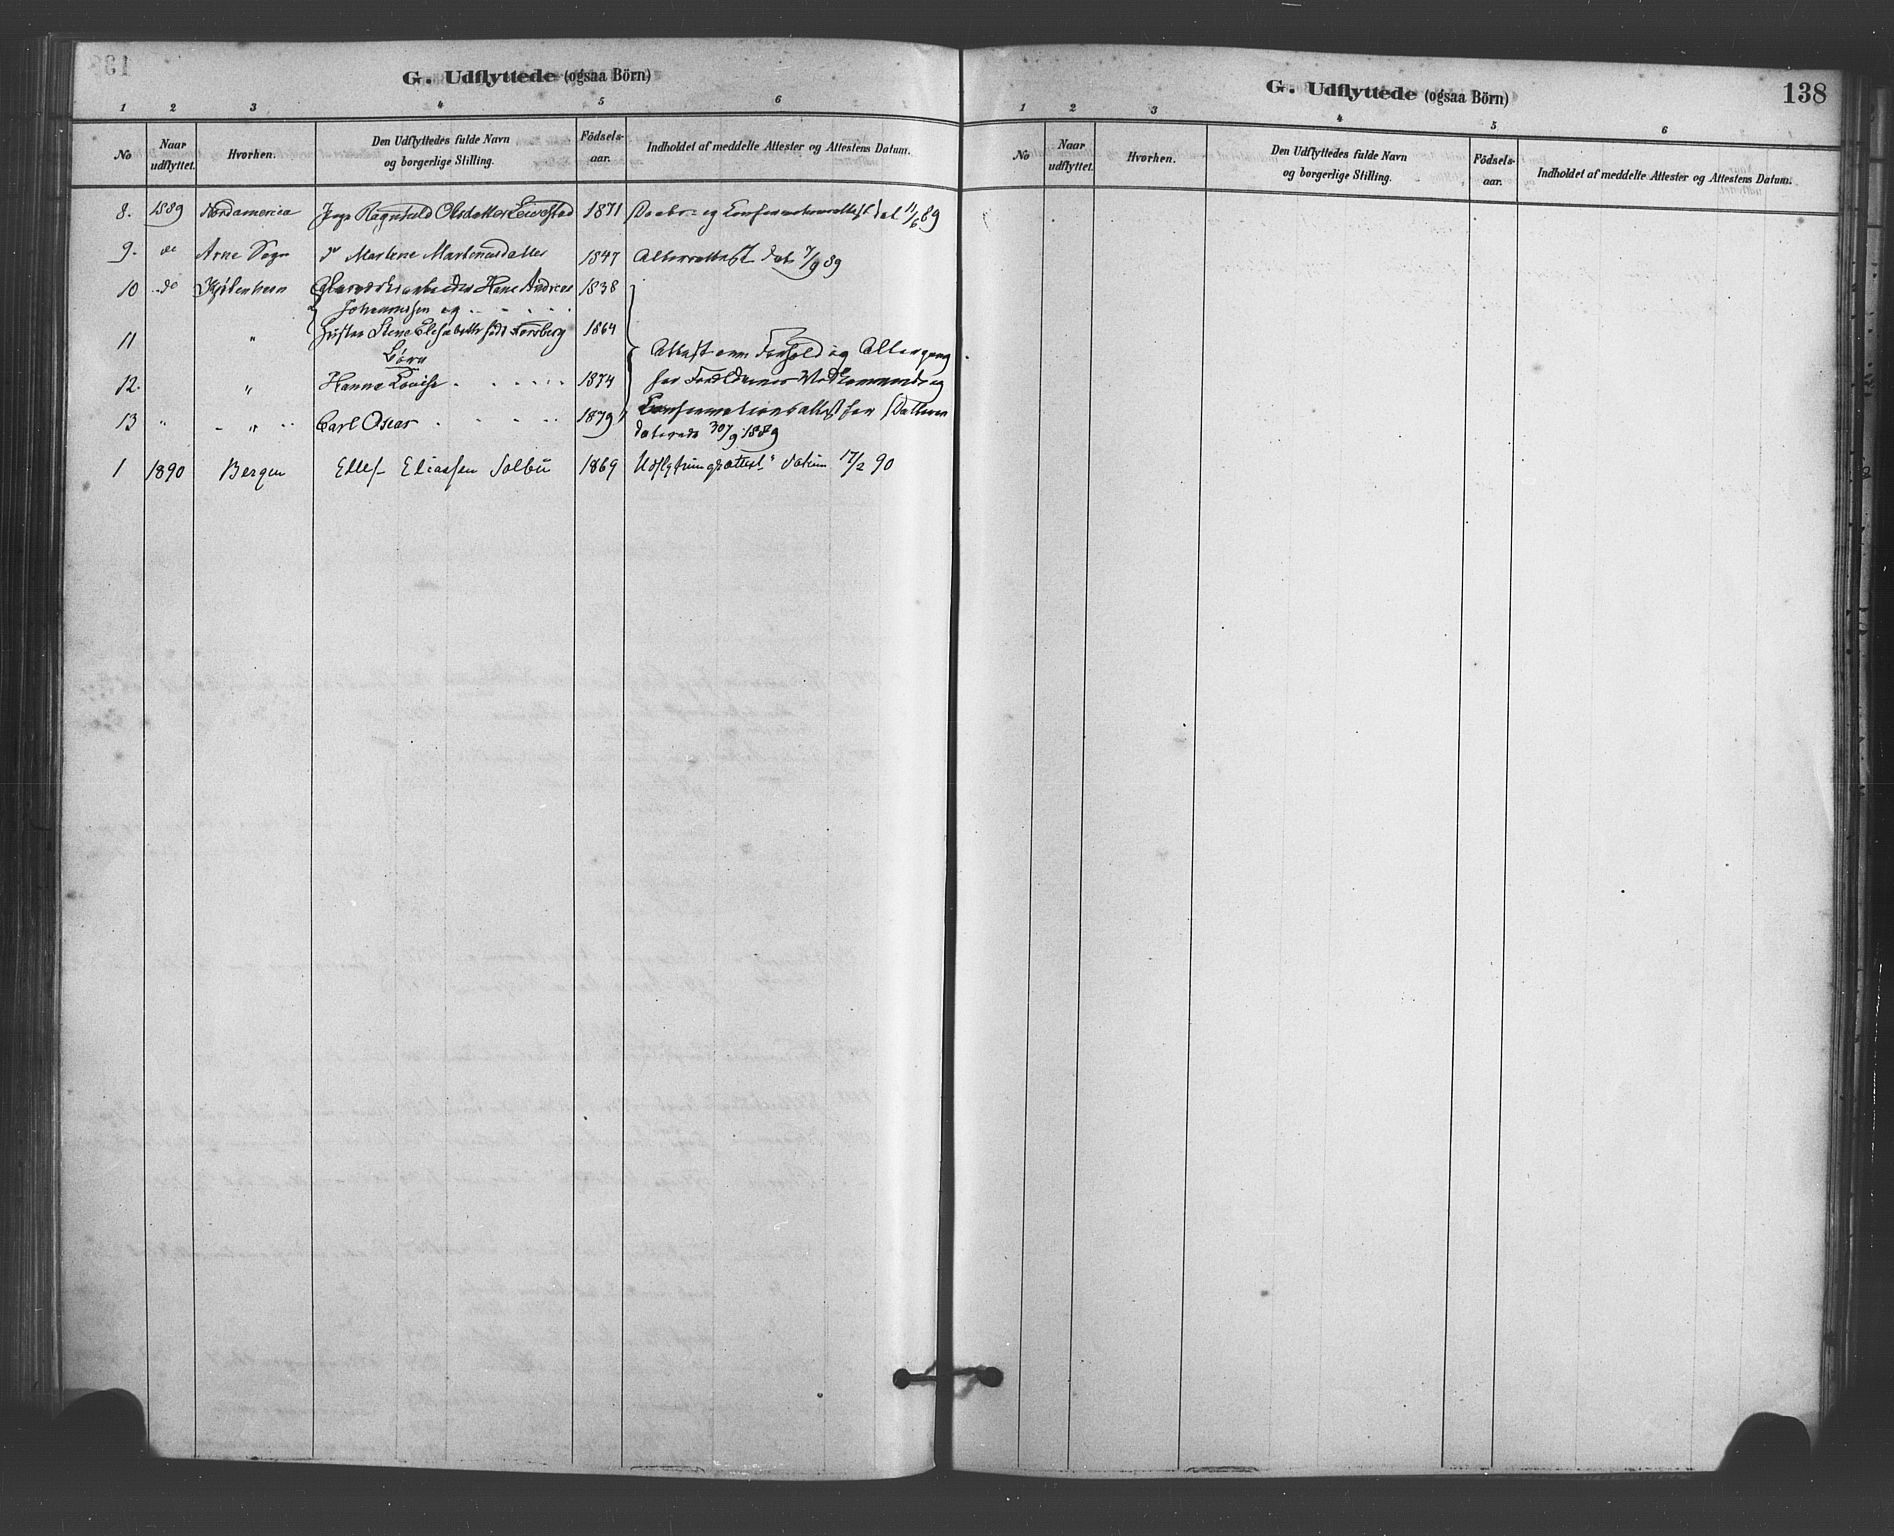 G. Udflyttede (ogsaa Börn)
1 2 3 4 5 6
No Naar udflyttet. Hvorhen. Den Udflyttedes fulde Navn og borgerlige Stilling. Födsels-aar. Indholdet af meddelte Attester og Attestens Datum.
8. 1889 Nordamerica Pige Ragnhild Olsdatter 1871 Daabs- og Confirmationsattest dat 11/6 89
9. do Arne Sogn d° Martene Martenusdatter 1847 Alterattest dat 7/9 89
10 do Kjöbenhavn Glasværksarbeider Hans Andreas 1838
Johannesen og
11 " Hustru Stene Elisabeth født Forsberg 1864
Börn
Attest om Forhold og Altergang
12. " Hanna Lovise 1874 for Forældrenes Vedkommende og
13 " " Carl Oscar 1879 Confirmationsattest for Datteren
dateret 30/9 1889
1 1890 Bergen Ellef Eliassen Solbu 1869 Udflytningsattest datum 17/2 90
G. Udflyttede (ogsaa Börn) 138
1 2 3 4 5 6
No Naar udflyttet. Hvorhen. Den Udflyttedes fulde Navn og borgerlige Stilling. Födsels-aar. Indholdet af meddelte Attester og Attestens Datum.